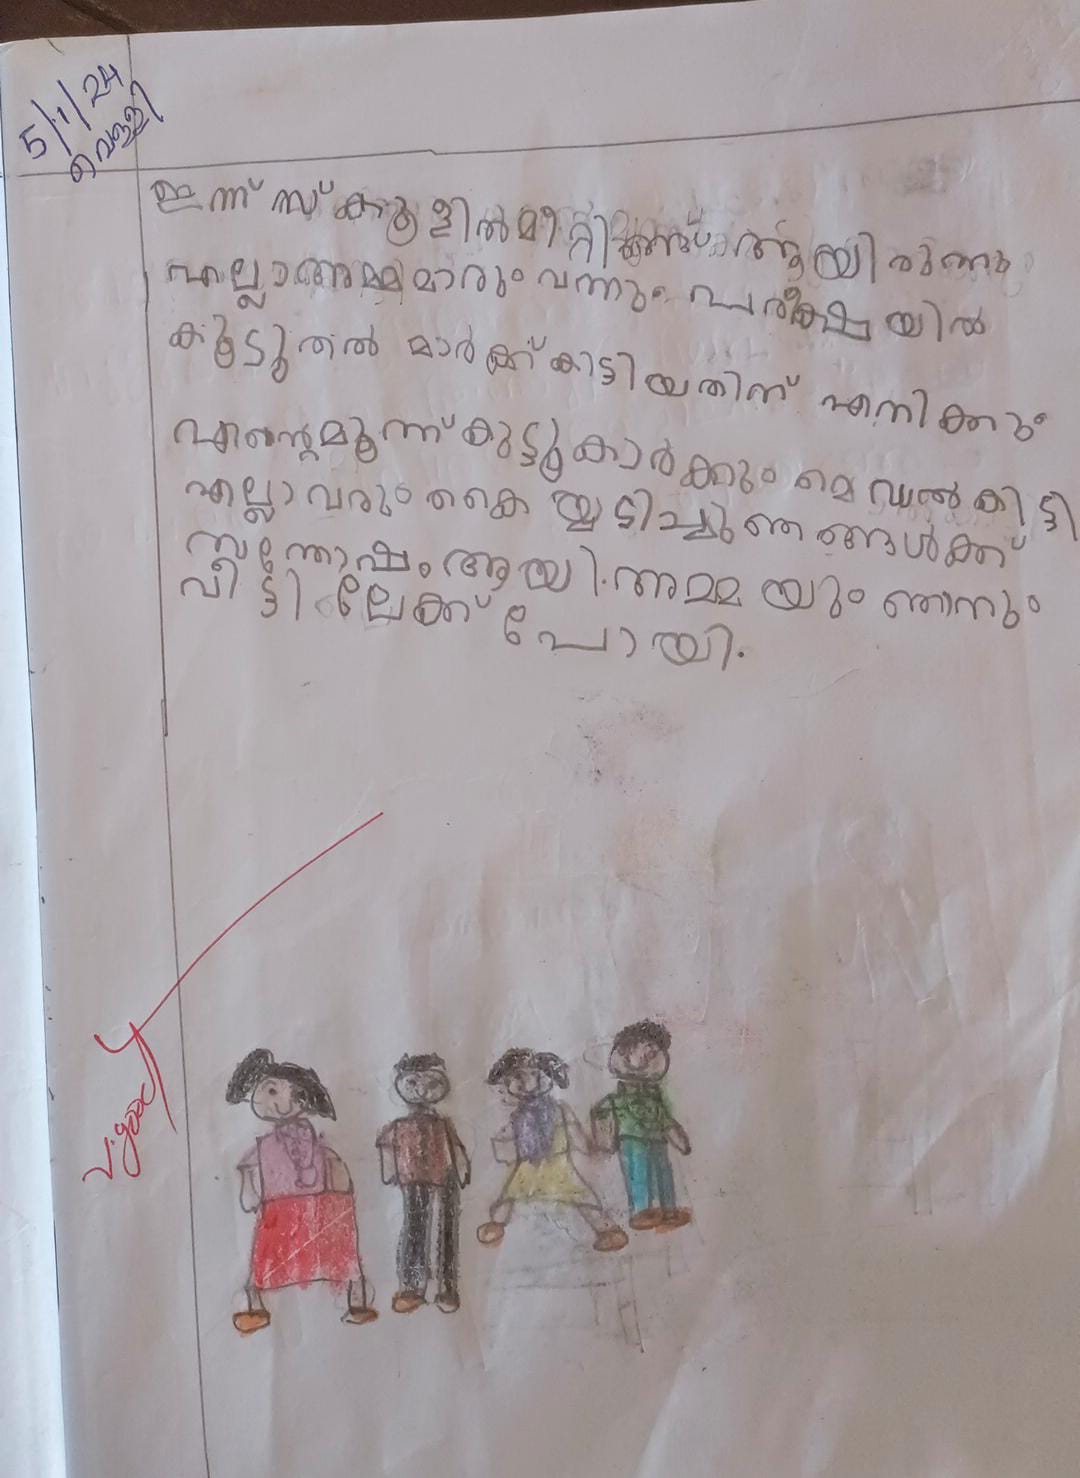 5/1/24
വെള്ളി
ഇന്ന് സ്കൂളിൽ മീറ്റിങ്ങ് ആയിരുന്നു
എല്ലാ അമ്മമാരും വന്നു. പരീക്ഷയിൽ
കൂടുതൽ മാർക്ക് കിട്ടിയതിന് എനിക്കും
എന്റെ മൂന്ന് കുട്ടുകാർക്കും മെഡൽ കിട്ടി
എല്ലാവരും കൈയ്യടിച്ചു ഞങ്ങൾക്ക്
സന്തോഷം ആയി. അമ്മയും ഞാനും
വീട്ടിലേക്ക് പോയി.
V.good